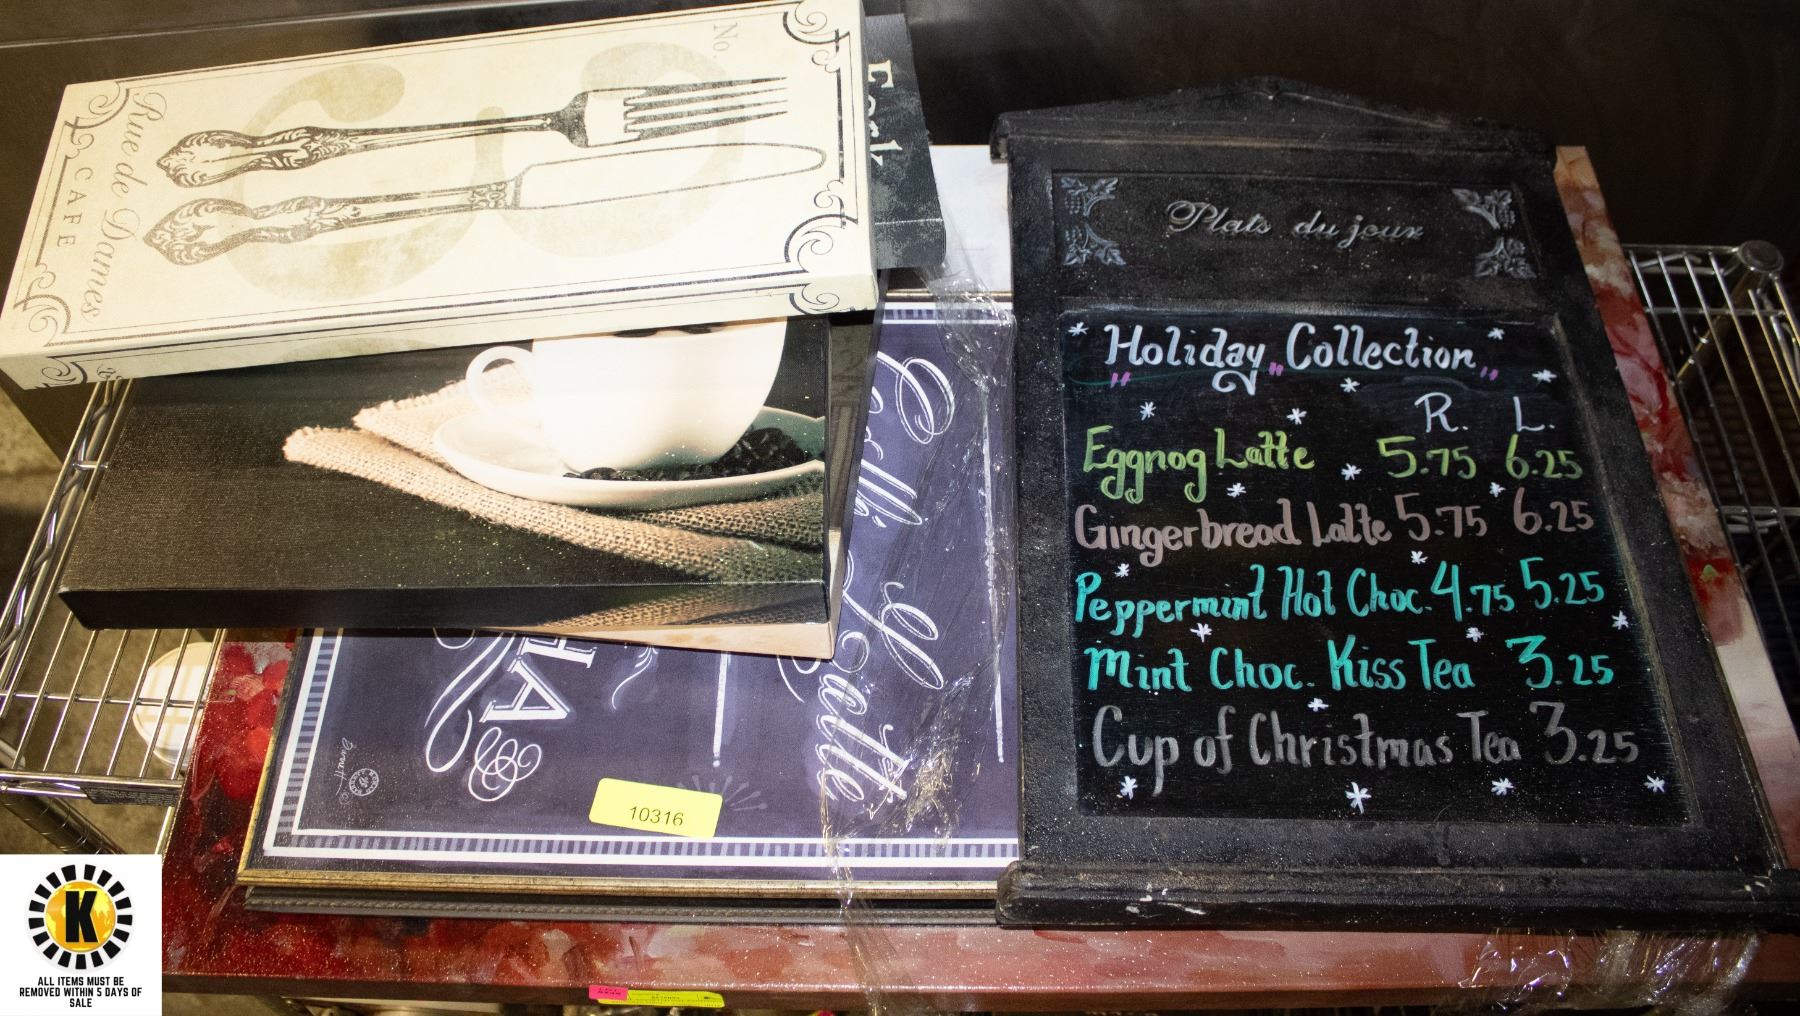 No.
Rue de Dames
CAFE
Fork
Caffè Latte
HA
10316
Plats du jour
"Holiday" Collection"
R. L.
Eggnog Latte 5.75 6.25
Gingerbread Latte 5.75 6.25
Peppermint Hot Choc. 4.75 5.25
Mint Choc. Kiss Tea 3.25
Cup of Christmas Tea 3.25
K
ALL ITEMS MUST BE
REMOVED WITHIN 5 DAYS OF
SALE